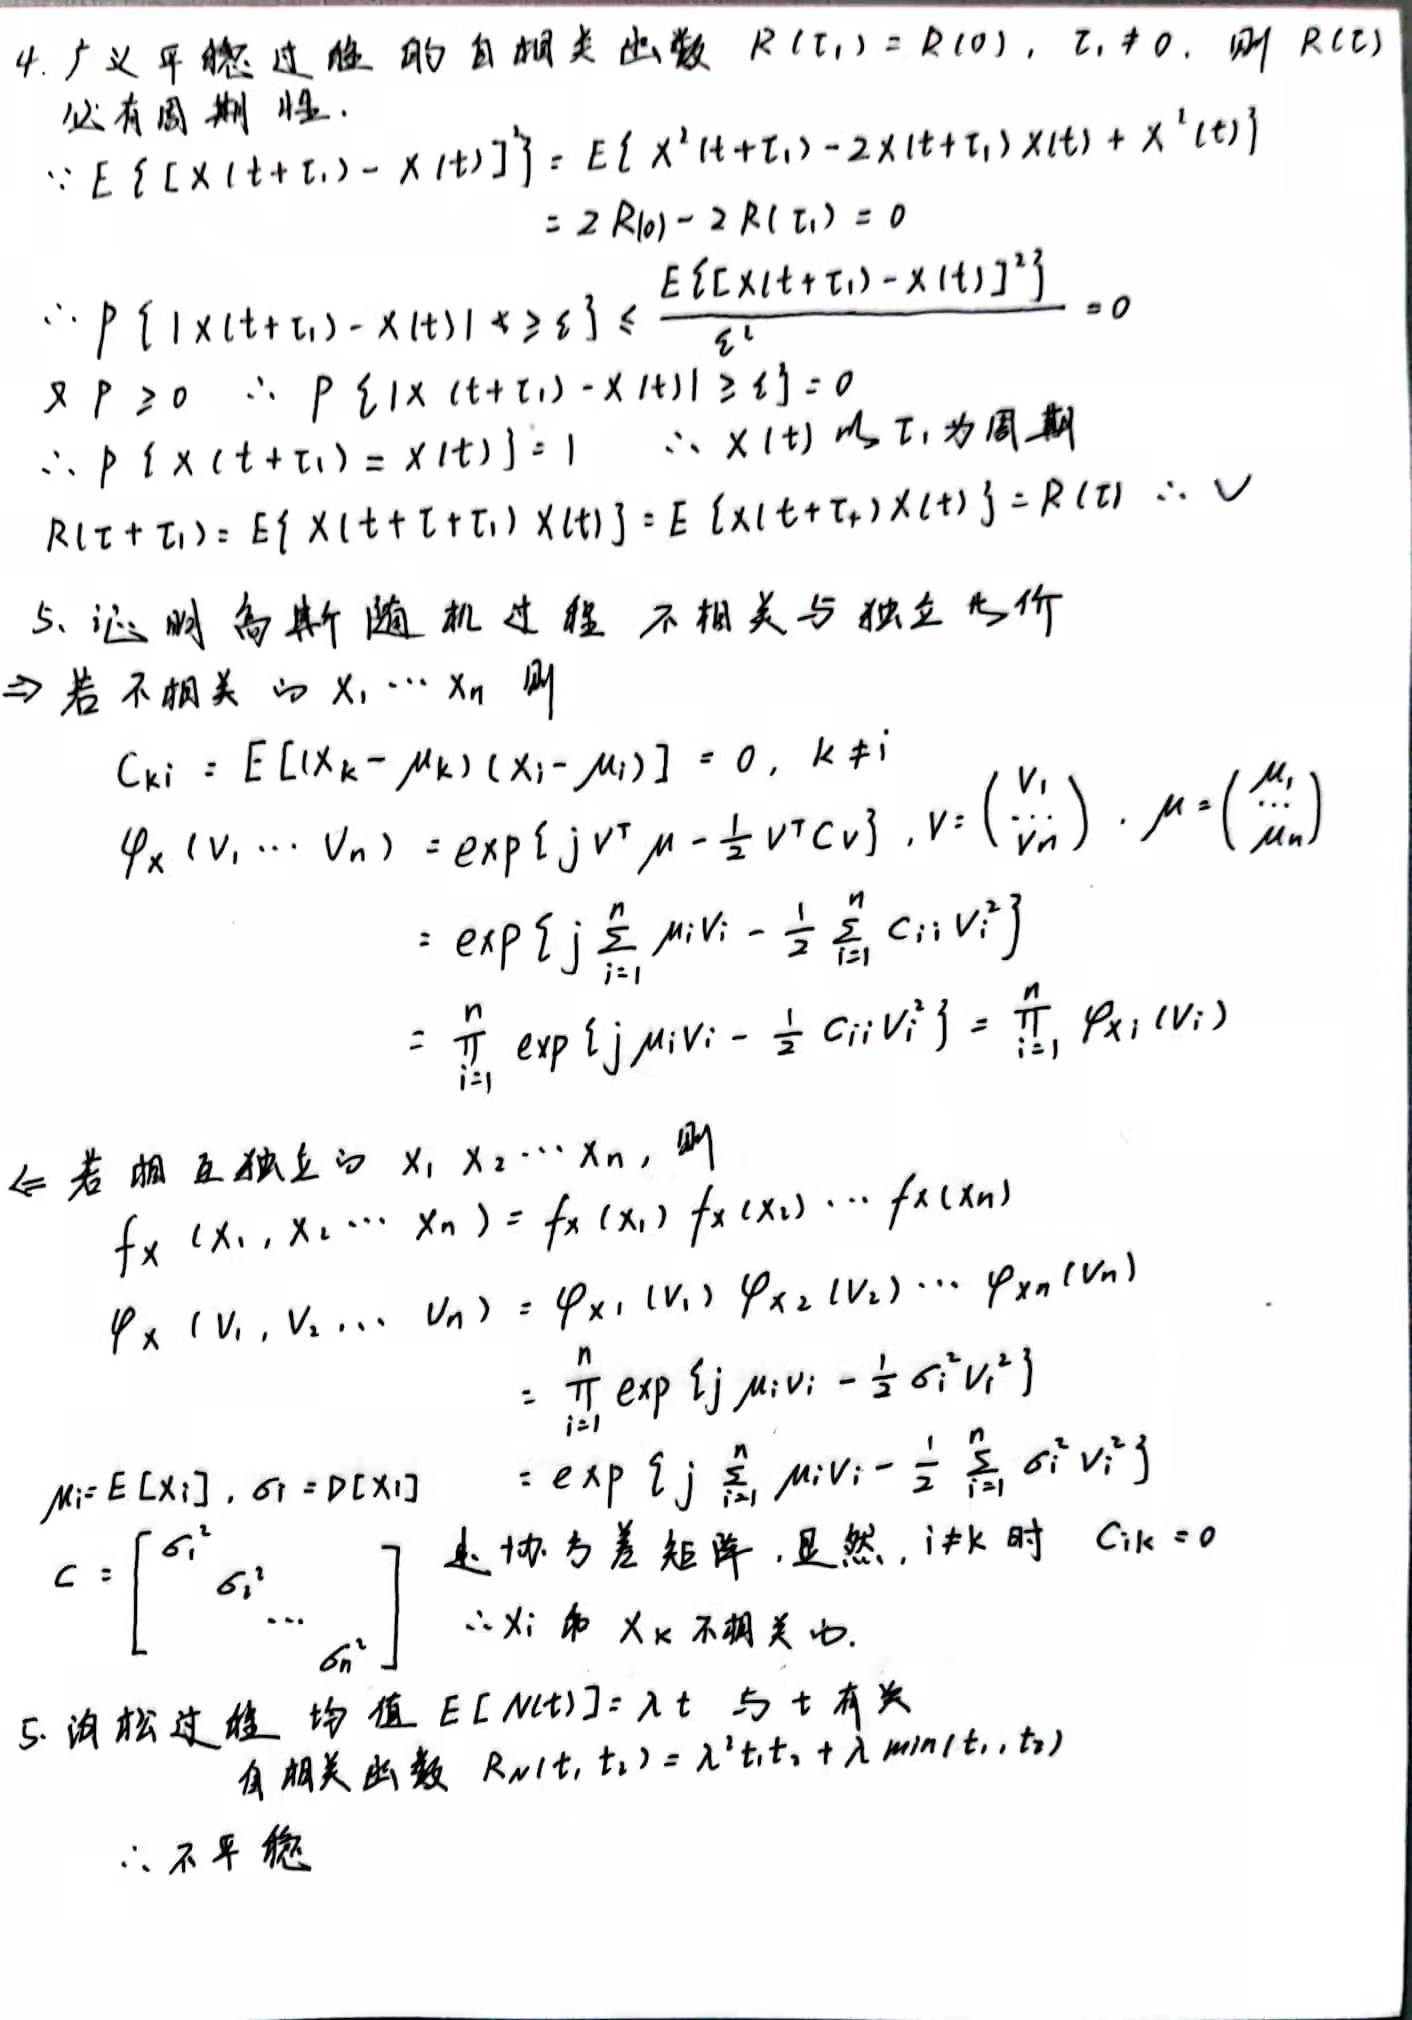 4. 广义平稳过程的自相关函数 R(τ₁) = R(0), τ₁ ≠ 0. 则 R(τ)
必有周期性.
∵ E{[X(t+τ₁) - X(t)]²} = E{X²(t+τ₁) - 2X(t+τ₁)X(t) + X²(t)}
= 2R(0) - 2R(τ₁) = 0
∴ P{|X(t+τ₁) - X(t)| ≥ ε} ≤ E{[X(t+τ₁) - X(t)]²} / ε² = 0
又 P ≥ 0 ∴ P{|X(t+τ₁) - X(t)| ≥ ε} = 0
∴ P{X(t+τ₁) = X(t)} = 1 ∴ X(t) 以 τ₁ 为周期
R(τ+τ₁) = E{X(t+τ+τ₁)X(t)} = E{X(t+τ)X(t)} = R(τ) ∴ √
5、证明高斯随机过程不相关与独立等价
⇒ 若不相关的 X₁ … Xn 则
Cki = E[(Xk - μk)(Xi - μi)] = 0, k ≠ i
φx(V₁ … Vn) = exp{jVᵀμ - ½VᵀCV}, V = (V₁ … Vn), μ = (μ₁ … μn)
= exp{j Σⁿᵢ₌₁ μiVi - ½ Σⁿᵢ₌₁ CiiVi²}
= Πⁿᵢ₌₁ exp{jμiVi - ½CiiVi²} = Πⁿᵢ₌₁ φxi(Vi)
⇐ 若相互独立的 X₁ X₂ … Xn, 则
fx(X₁, X₂ … Xn) = fx(X₁) fx(X₂) … fx(Xn)
φx(V₁, V₂ … Vn) = φx₁(V₁) φx₂(V₂) … φxn(Vn)
= Πⁿᵢ₌₁ exp{jμiVi - ½σi²Vi²}
μi = E[Xi], σi = D[Xi] = exp{j Σⁿᵢ₌₁ μiVi - ½ Σⁿᵢ₌₁ σi²Vi²}
C = [σ₁² σ₂² … σn²] 是协方差矩阵. 显然, i≠k 时 Cik = 0
∴ Xi 和 Xk 不相关的.
5. 泊松过程 均值 E[N(t)] = λt 与 t 有关
自相关函数 RN(t₁ t₂) = λ²t₁t₂ + λ min(t₁, t₂)
∴ 不平稳